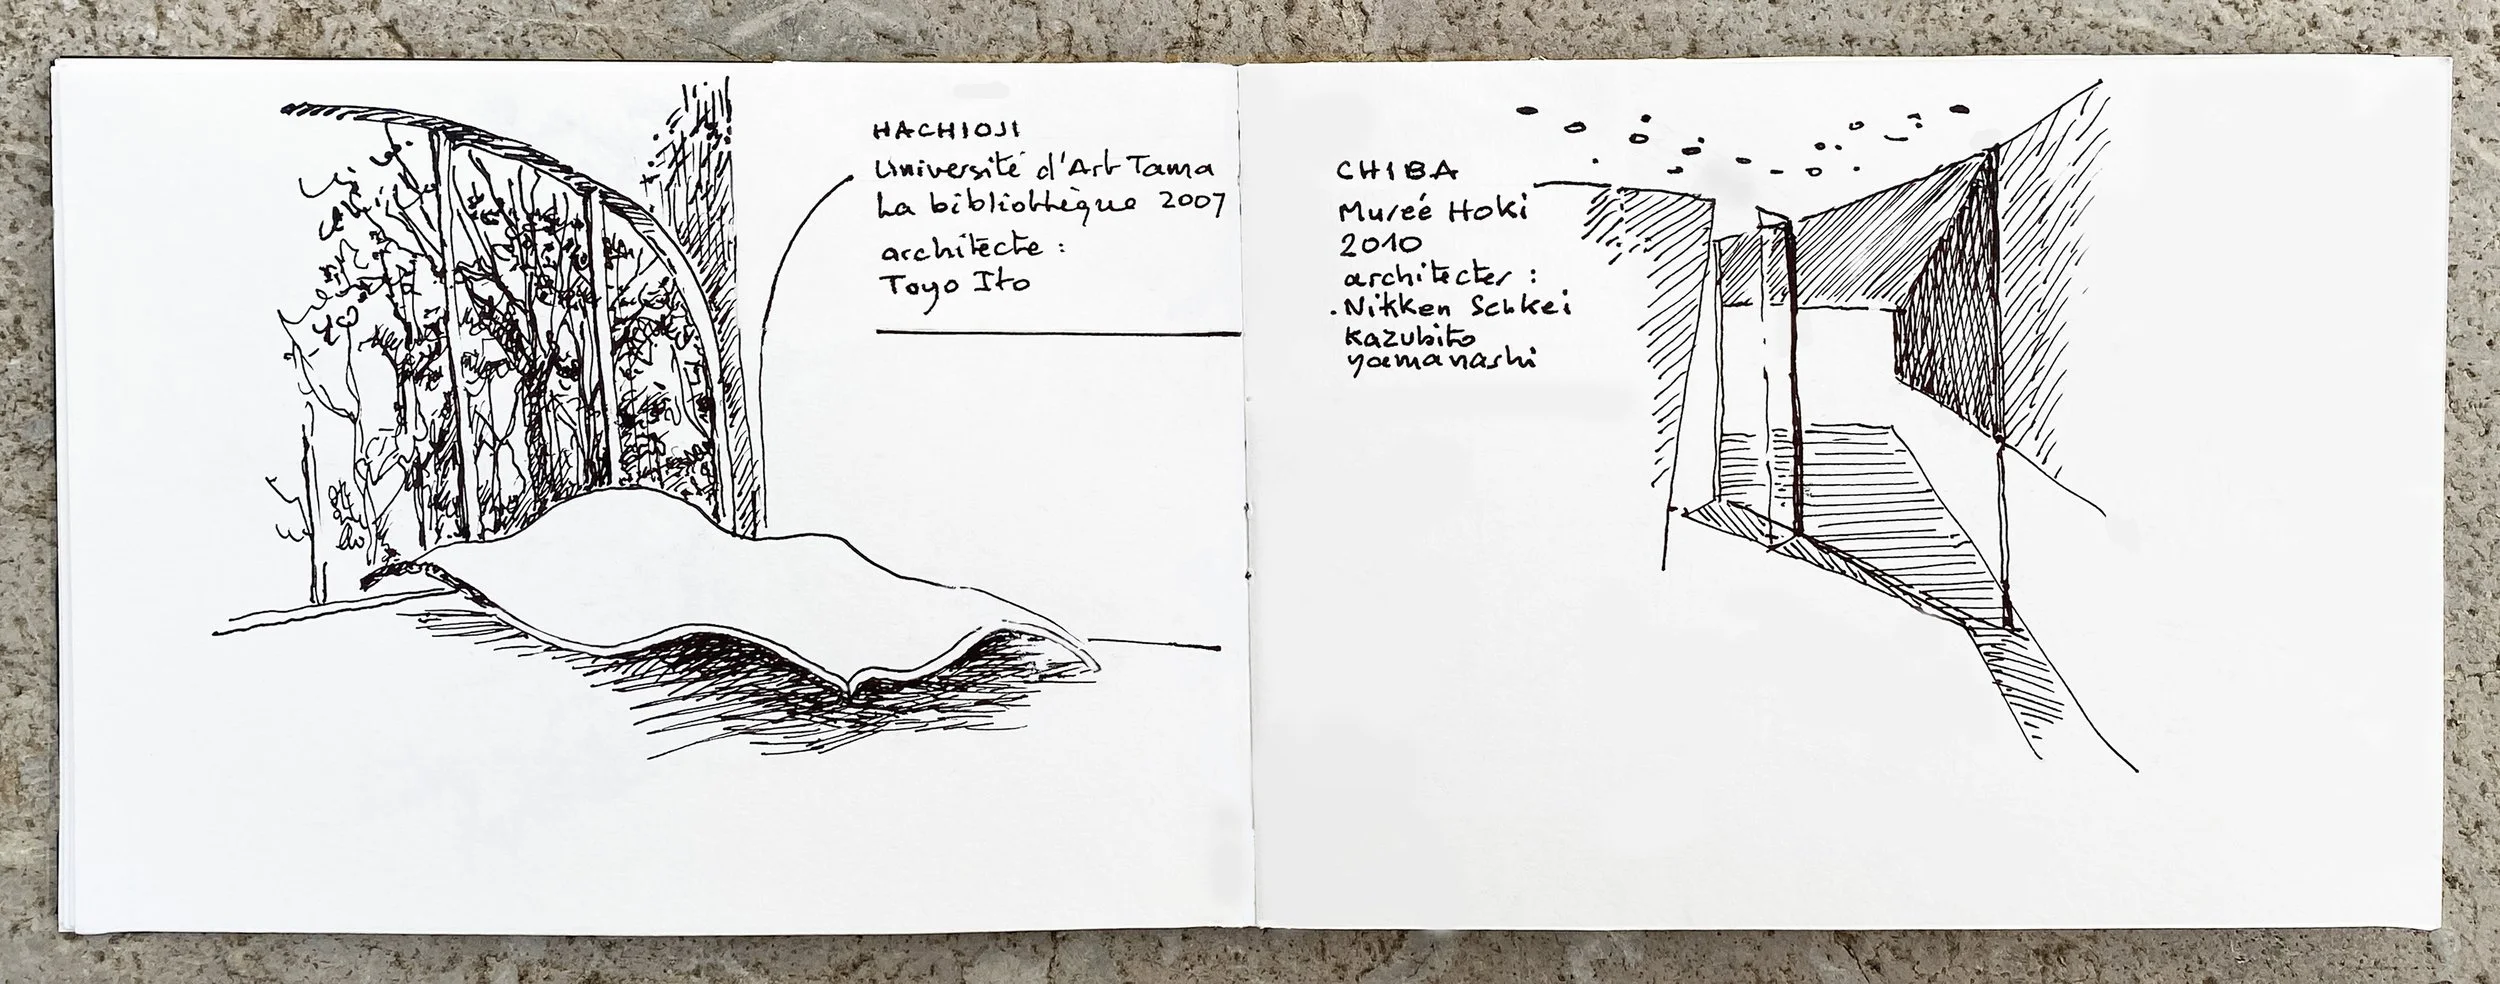 HACHIOJI
Université d'Art Tama
La bibliothèque 2007
architecte :
Toyo Ito
CHIBA
Museé Hoki
2010
architectes :
. Nikken Sekkei
Kazuhito
yamanashi